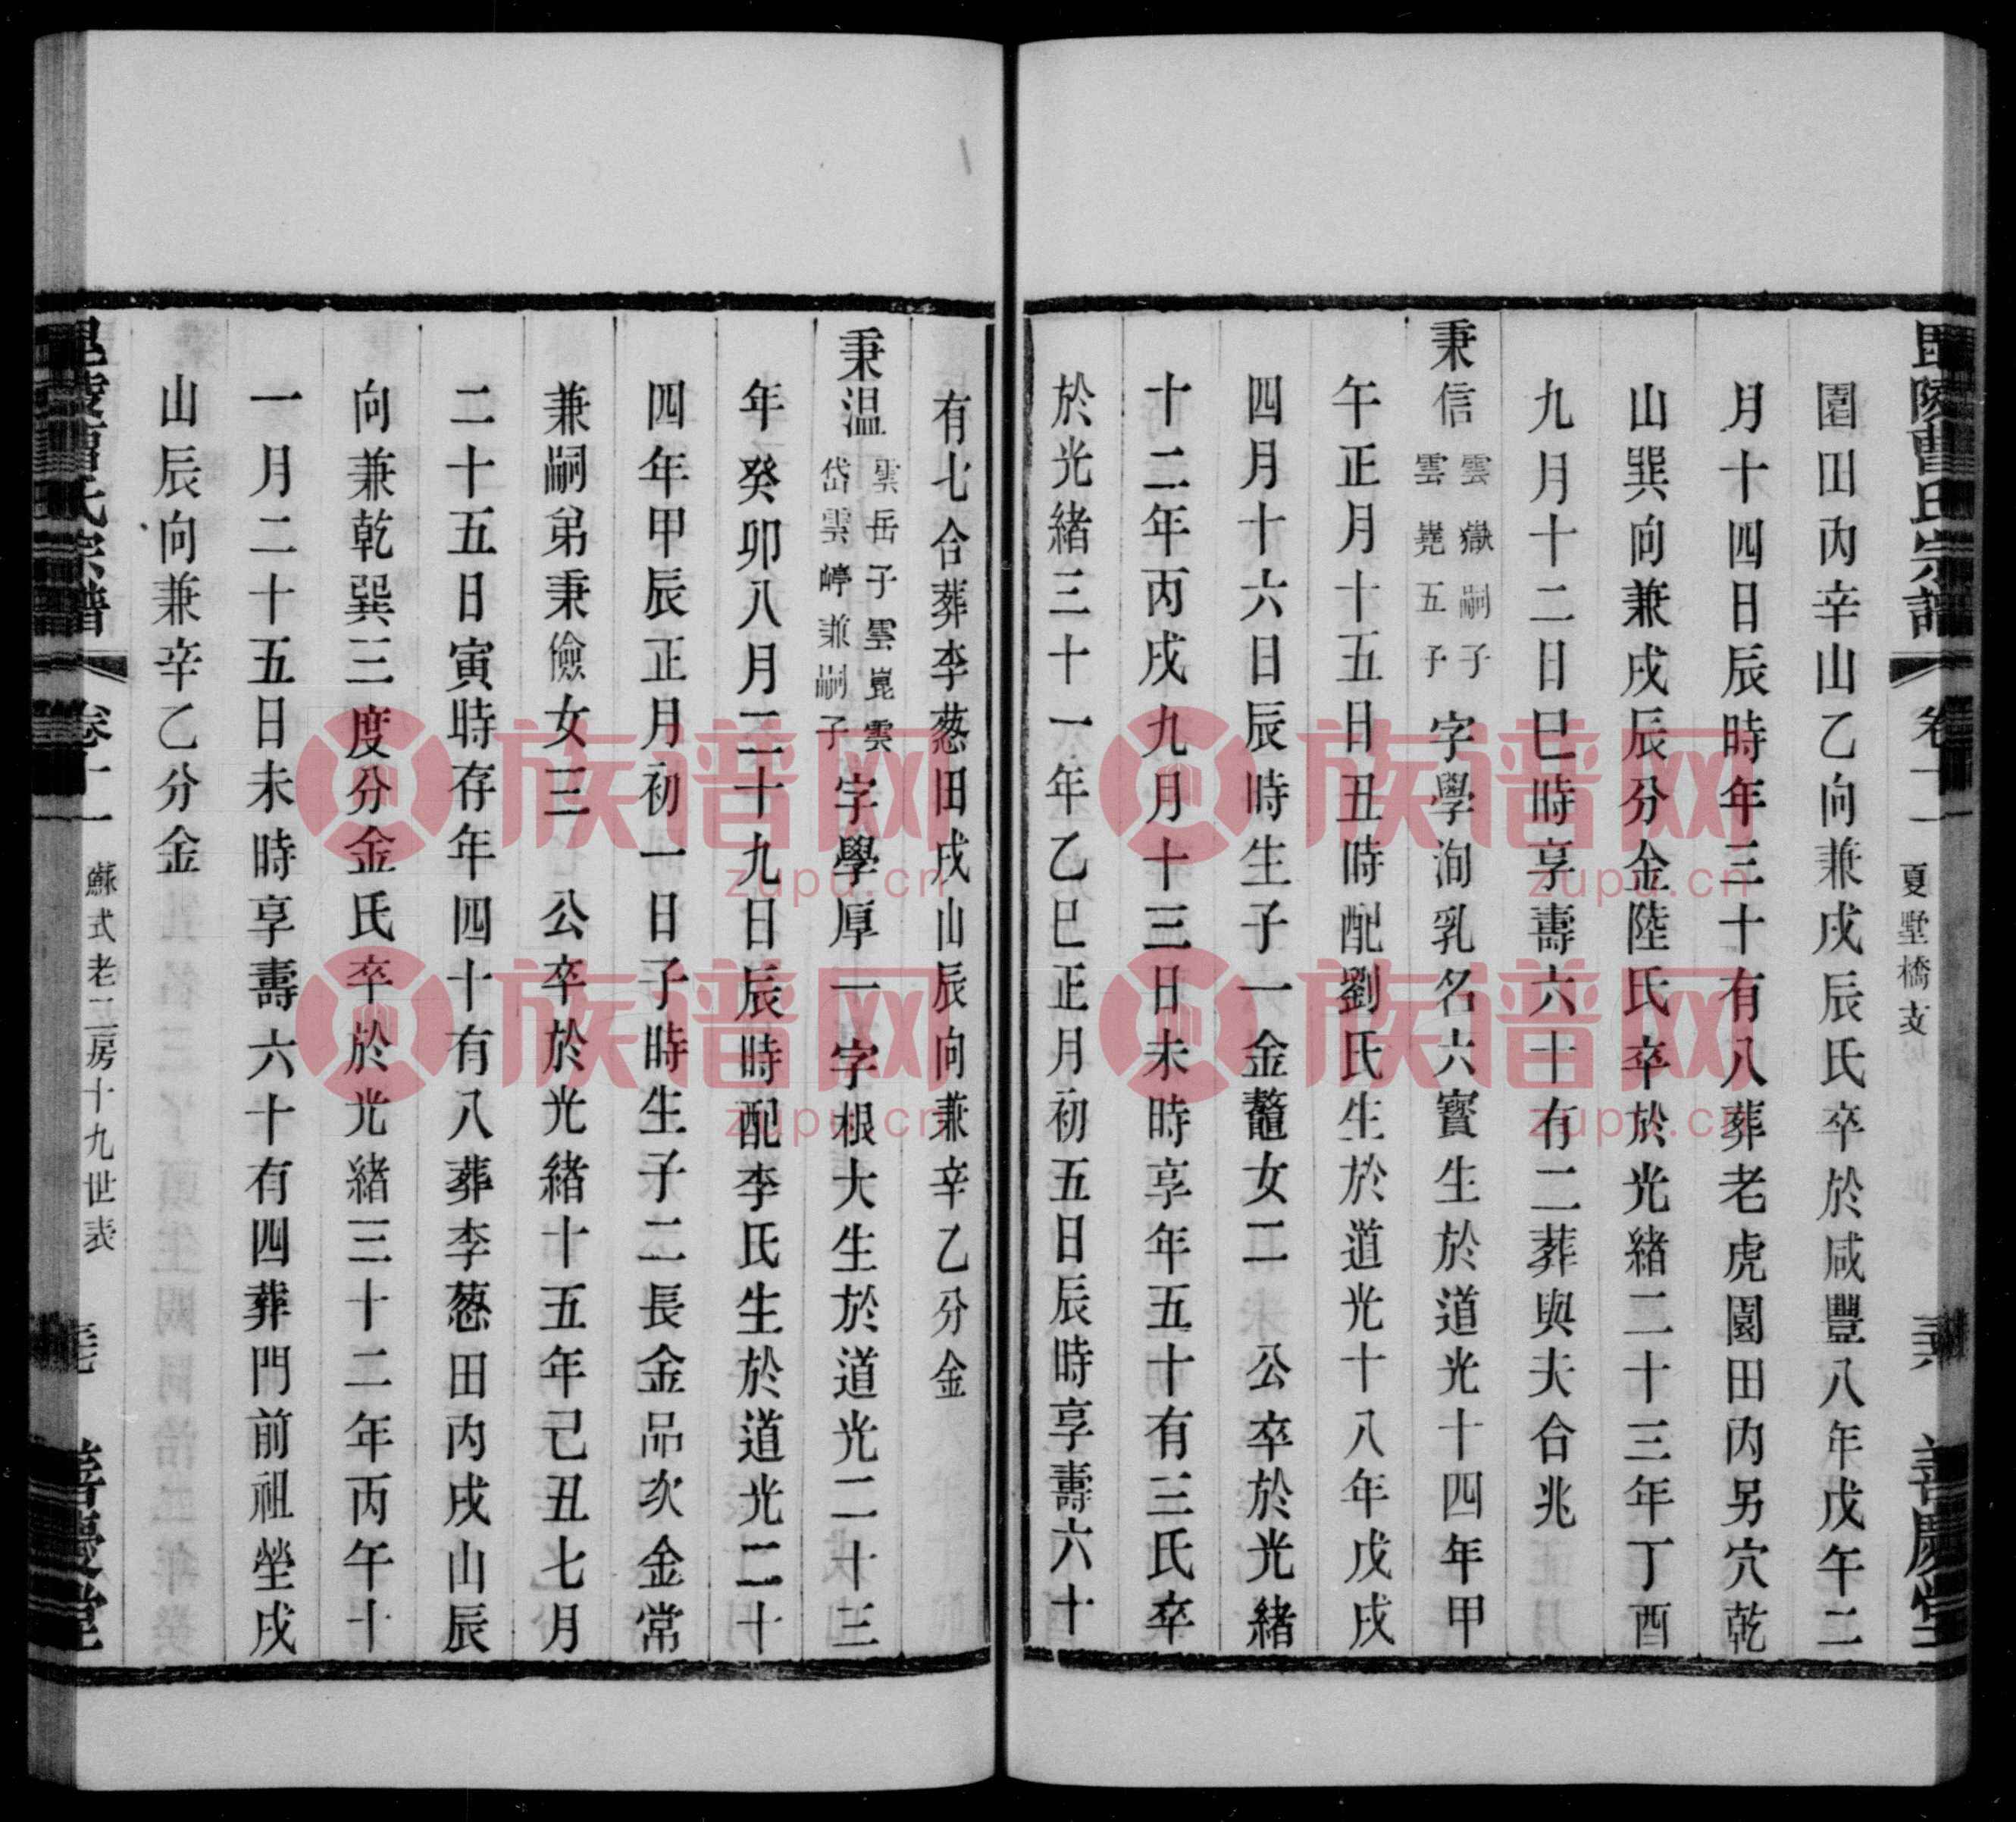 毘陵曹氏宗譜 卷十一 夏墅橋支 美 善慶堂
園田內辛山乙向兼戌辰氏卒於咸豐八年戊午二
月十四日辰時年三十有八葬老虎園田內另穴乾
山巽向兼戌辰分金陸氏卒於光緒二十三年丁酉
九月十二日巳時享壽六十有二葬與夫合兆
秉信 雲嶽嗣子 雲嶤五子 字學洵乳名六寶生於道光十四年甲
午正月十五日丑時配劉氏生於道光十八年戊戌
四月十六日辰時生子一金鼇女二 公卒於光緒
十二年丙戌九月十三日未時享年五十有三氏卒
於光緒三十一年乙巳正月初五日辰時享壽六十
有七合葬李葱田戌山辰向兼辛乙分金
秉温 雲岳子雲崑雲 岱雲崢兼嗣子 字學厚一字根大生於道光二十三
年癸卯八月二十九日辰時配李氏生於道光二十
四年甲辰正月初一日子時生子二長金品次金常
兼嗣弟秉儉女三 公卒於光緒十五年己丑七月
二十五日寅時存年四十有八葬李葱田內戌山辰
向兼乾巽三度分金氏卒於光緒三十二年丙午十
一月二十五日未時享壽六十有四葬門前祖塋戌
山辰向兼辛乙分金
毘陵曹氏宗譜 卷十一 蘇式老二房十九世表 善慶堂
zupu.cn
族谱网
zupu.cn
族谱网
zupu.cn
族谱网
zupu.cn
族谱网